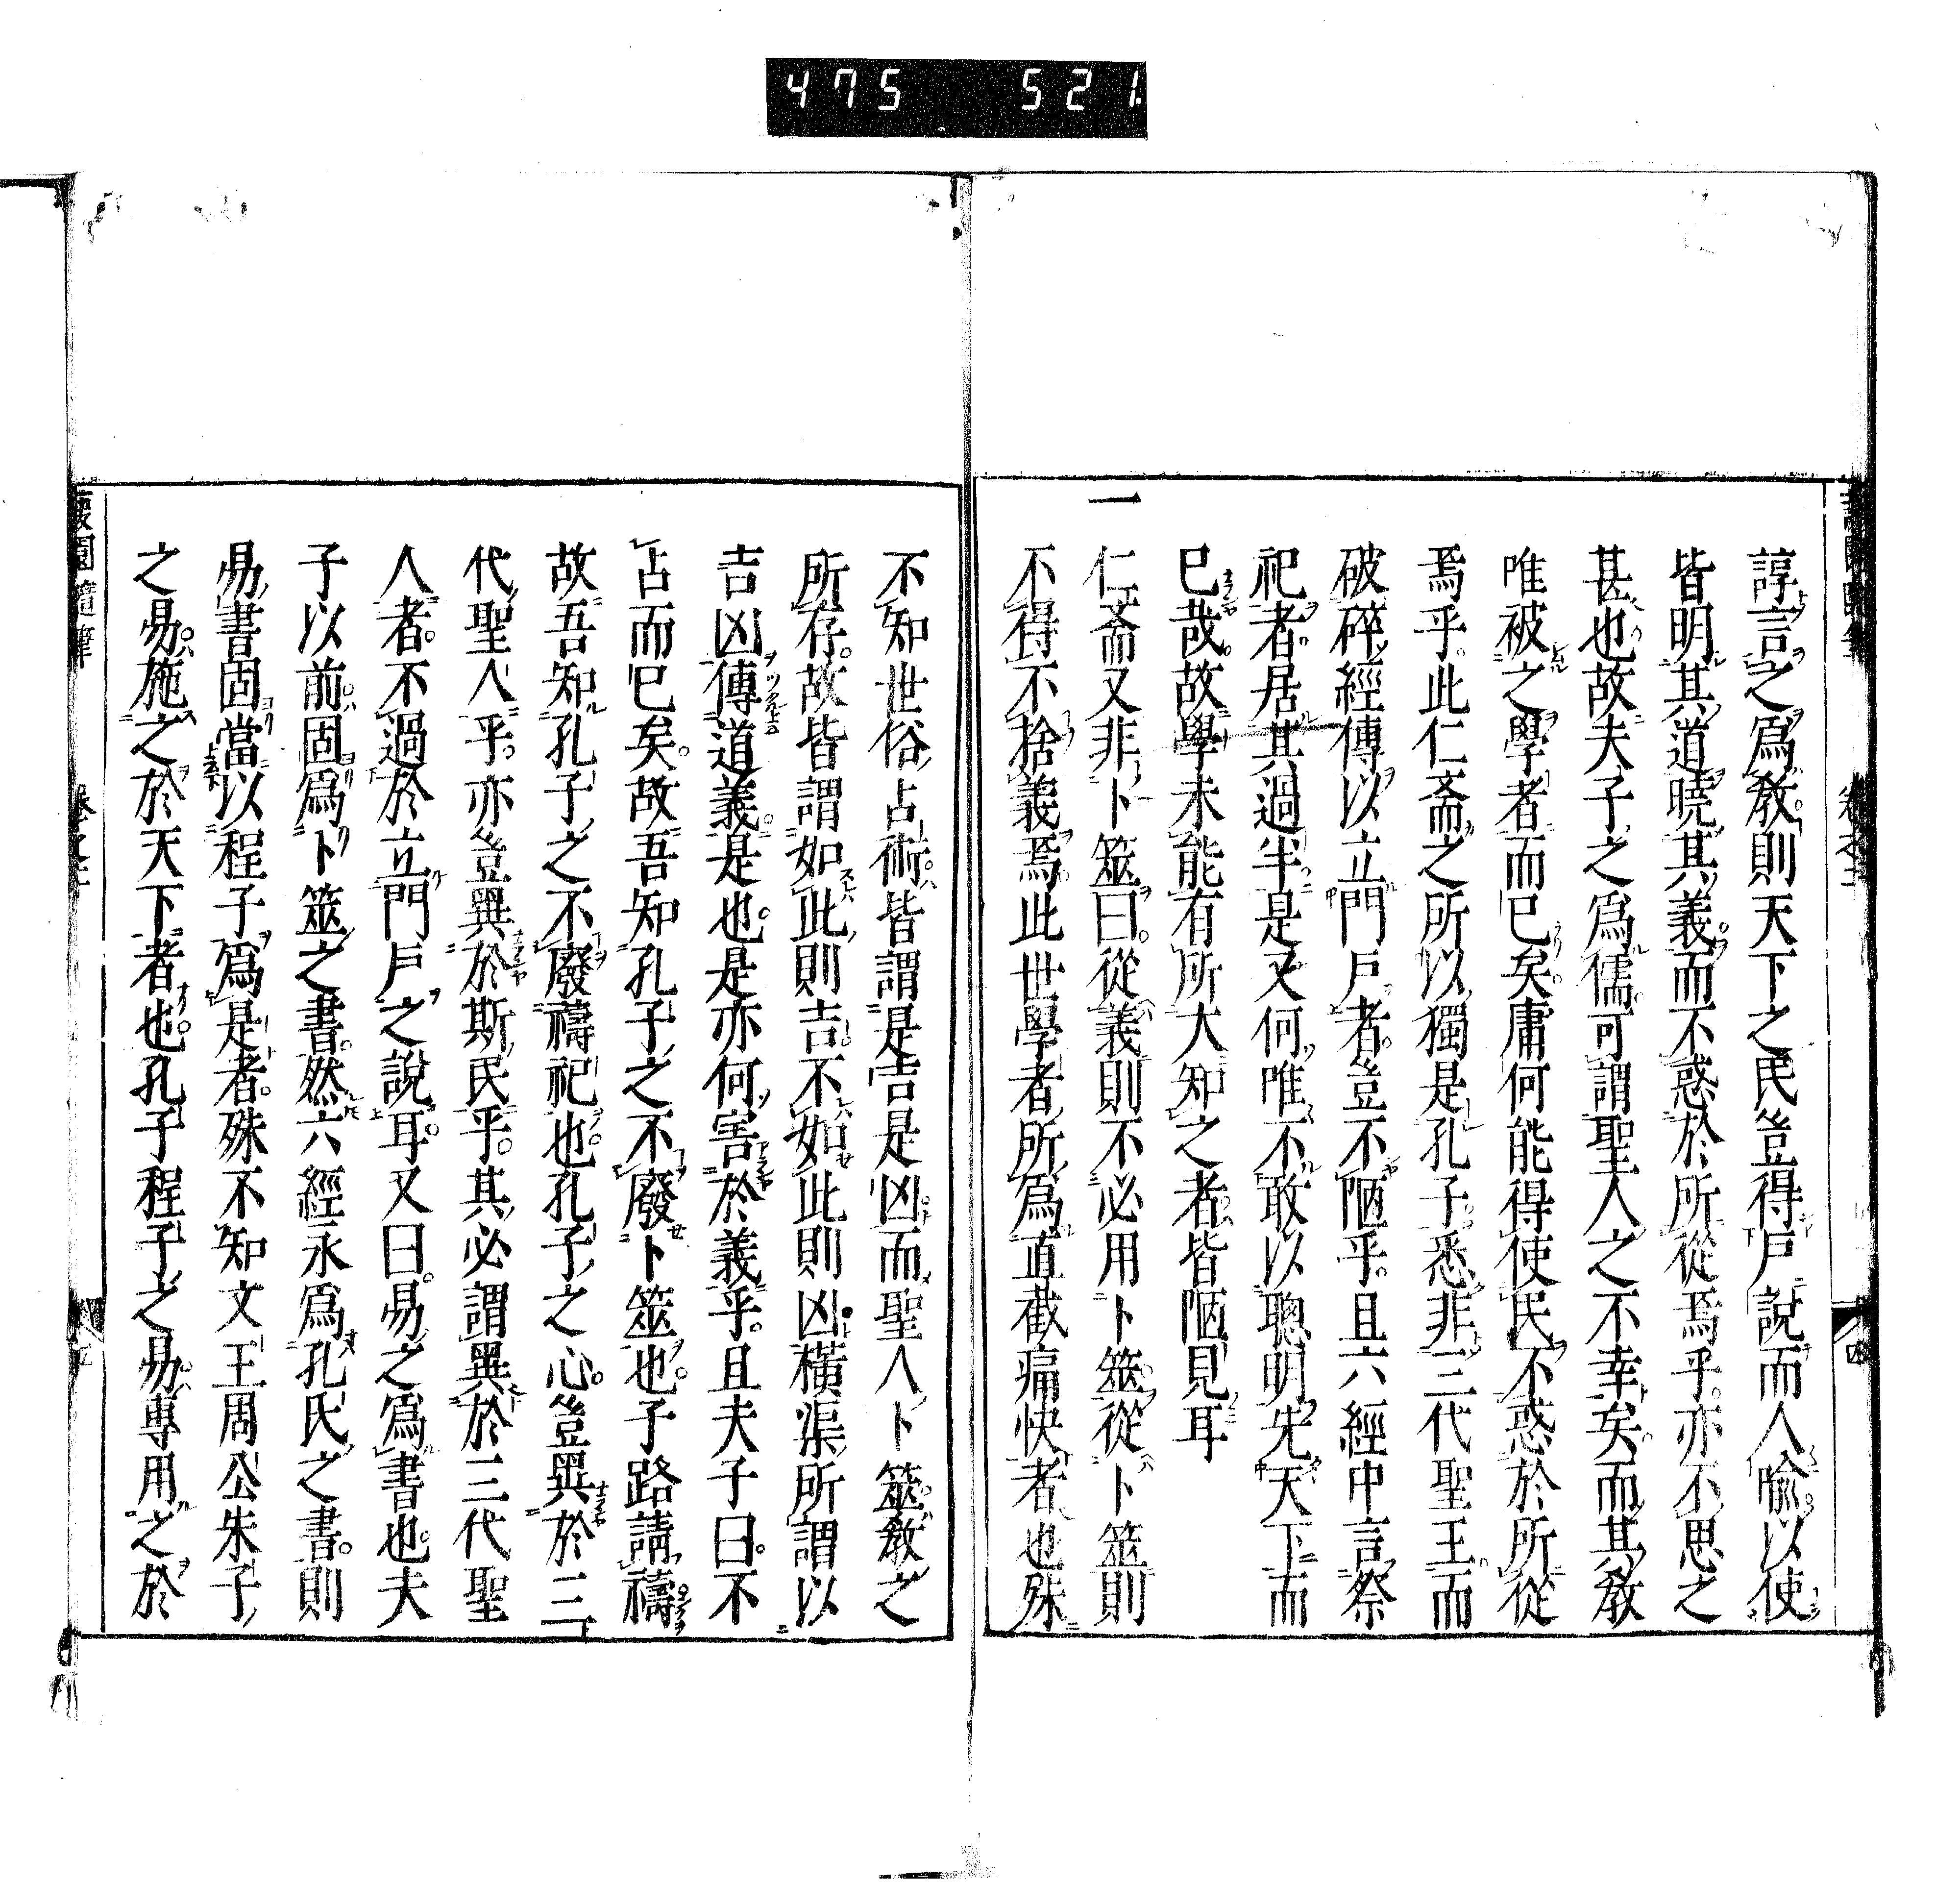 475 521
諄言之爲教則天下之民豈得戶說而人喩以使
皆明其道曉其義而不惑於所從焉乎亦不思之
甚也故夫子之爲儒可謂聖人之不幸矣而其教
唯被之學者而已矣庸何能得使民不惑於所從
焉乎此仁斎之所以獨是孔子悉非三代聖王而
破碎經傳以立門戶者豈不陋乎且六經中言祭
祀者居其過半是又何唯不敢以聰明先天下而
已哉故學未能有所大知之者皆陋見耳
一仁斎又非卜筮曰從義則不必用卜筮從卜筮則
不得不捨義焉此世學者所爲直截痛快者也殊
不知世俗占術皆謂是吉是凶而聖人卜筮教之
所存故皆謂如此則吉不如此則凶橫渠所謂以
吉凶傳道義是也是亦何害於義乎且夫子曰不
占而已矣故吾知孔子之不廢卜筮也子路請禱
故吾知孔子之不廢禱祀也孔子之心豈異於三
代聖人乎亦豈異於斯民乎其必謂異於三代聖
人者不過於立門戶之說耳又曰易之爲書也夫
子以前固爲卜筮之書然六經永爲孔氏之書則
易書固當以程子爲是者殊不知文王周公朱子
之易施之於天下者也孔子程子之易專用之於